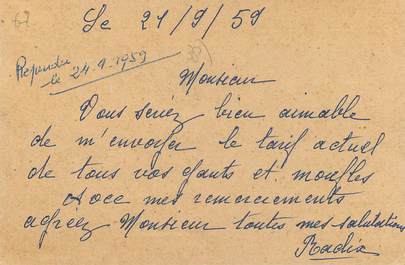 Le 21/9/59
Repondu
le 24.9.1959
Monsieur
Vous seriez bien aimable
de m'envoyer le tarif actuel
de tous vos gants et moufles
Avec mes remerciements
agréez Monsieur toutes mes salutations
Radix